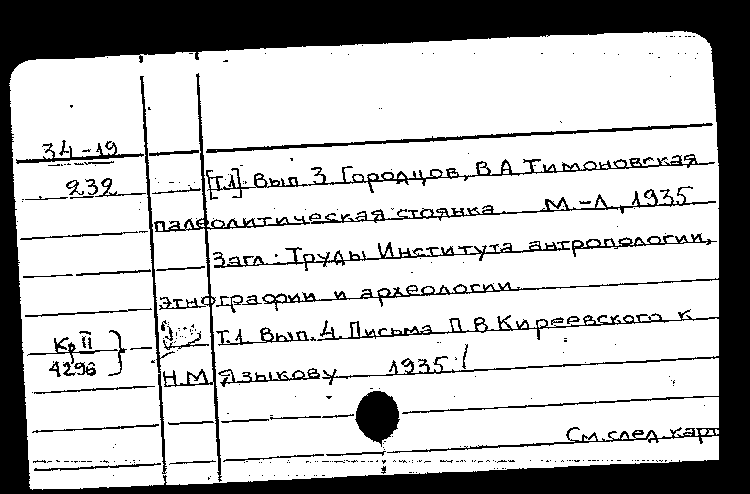 34-19
232
[Т.1]. Вып. 3. Городцов, В.А. Тимоновская
палеолитическая стоянка. М.-Л., 1935
Загл.: Труды Института антропологии,
этнографии и археологии.
Кр II
4296
Т.1. Вып. 4. Письма П.В. Киреевского к
Н.М. Языкову 1935. /
См. след. карт